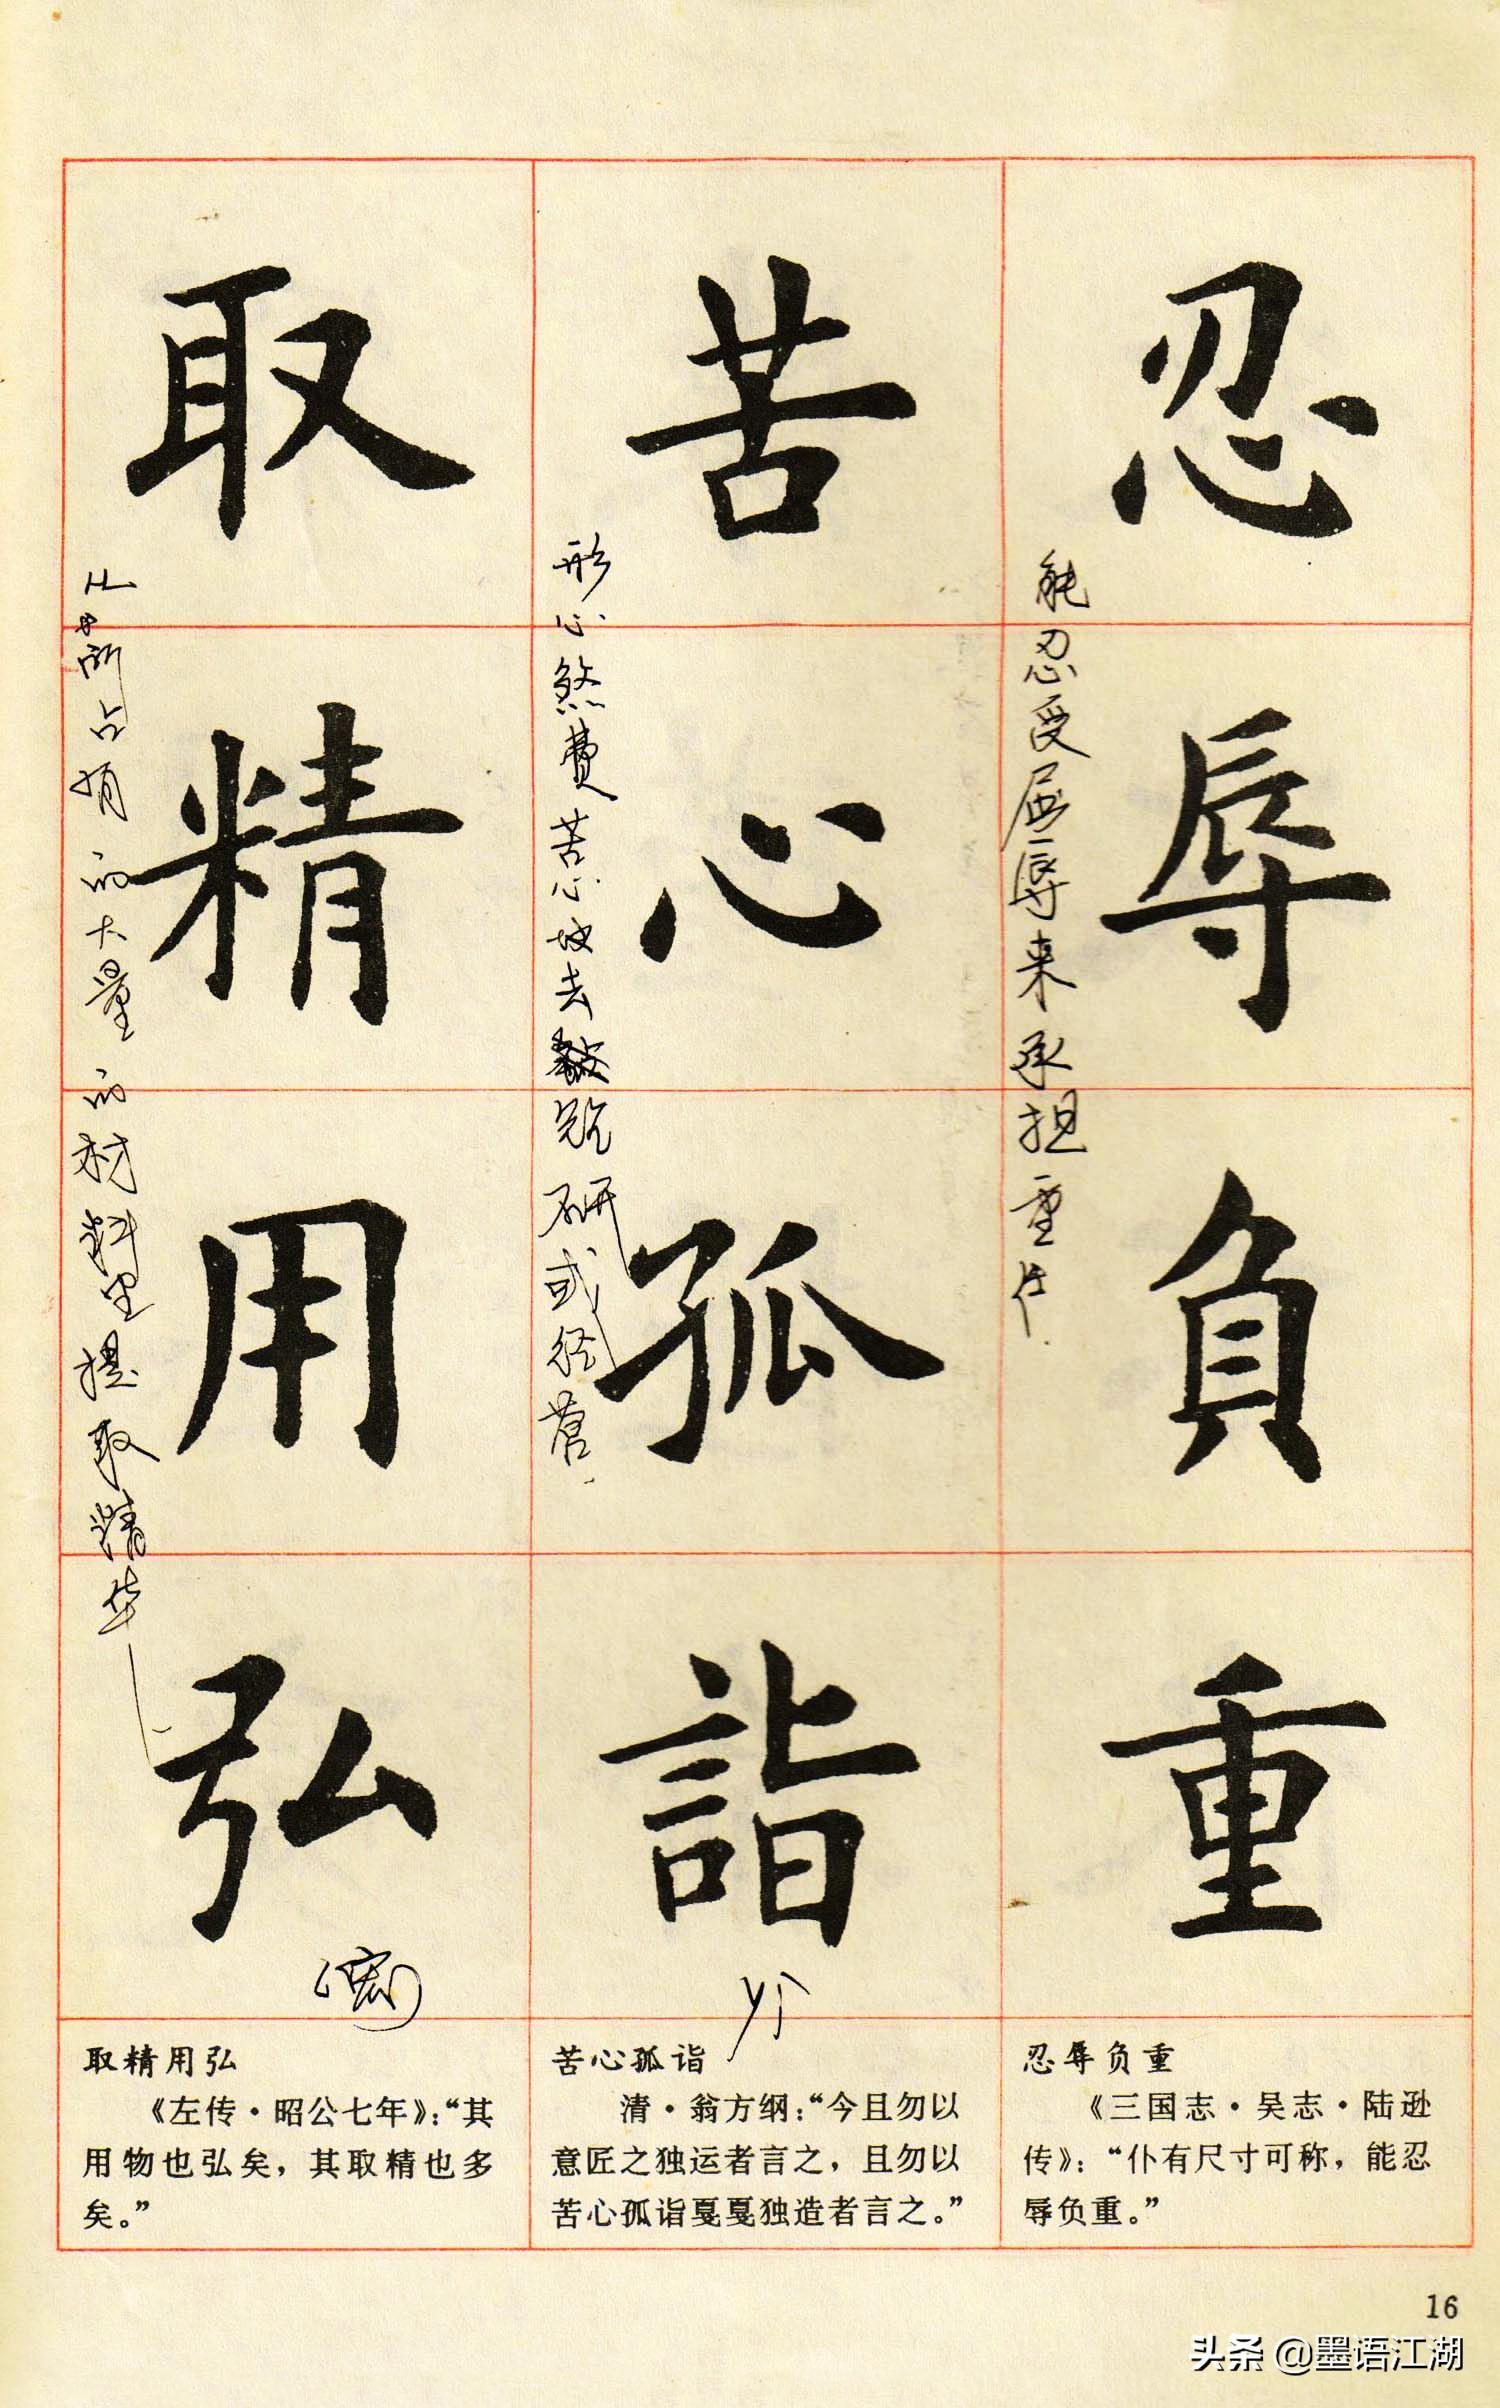 忍辱負重
能忍受屈辱来承担重任
苦心孤詣
形心煞費苦心地去
研或经营
取精用弘
所占有的大量的材料里提取精华
(宏)
忍辱负重
《三国志·吴志·陆逊
传》：“仆有尺寸可称，能忍
辱负重。”
苦心孤诣
清·翁方纲：“今且勿以
意匠之独运者言之，且勿以
苦心孤诣戛戛独造者言之。”
取精用弘
《左传·昭公七年》：“其
用物也弘矣，其取精也多
矣。”
16
头条 @墨语江湖